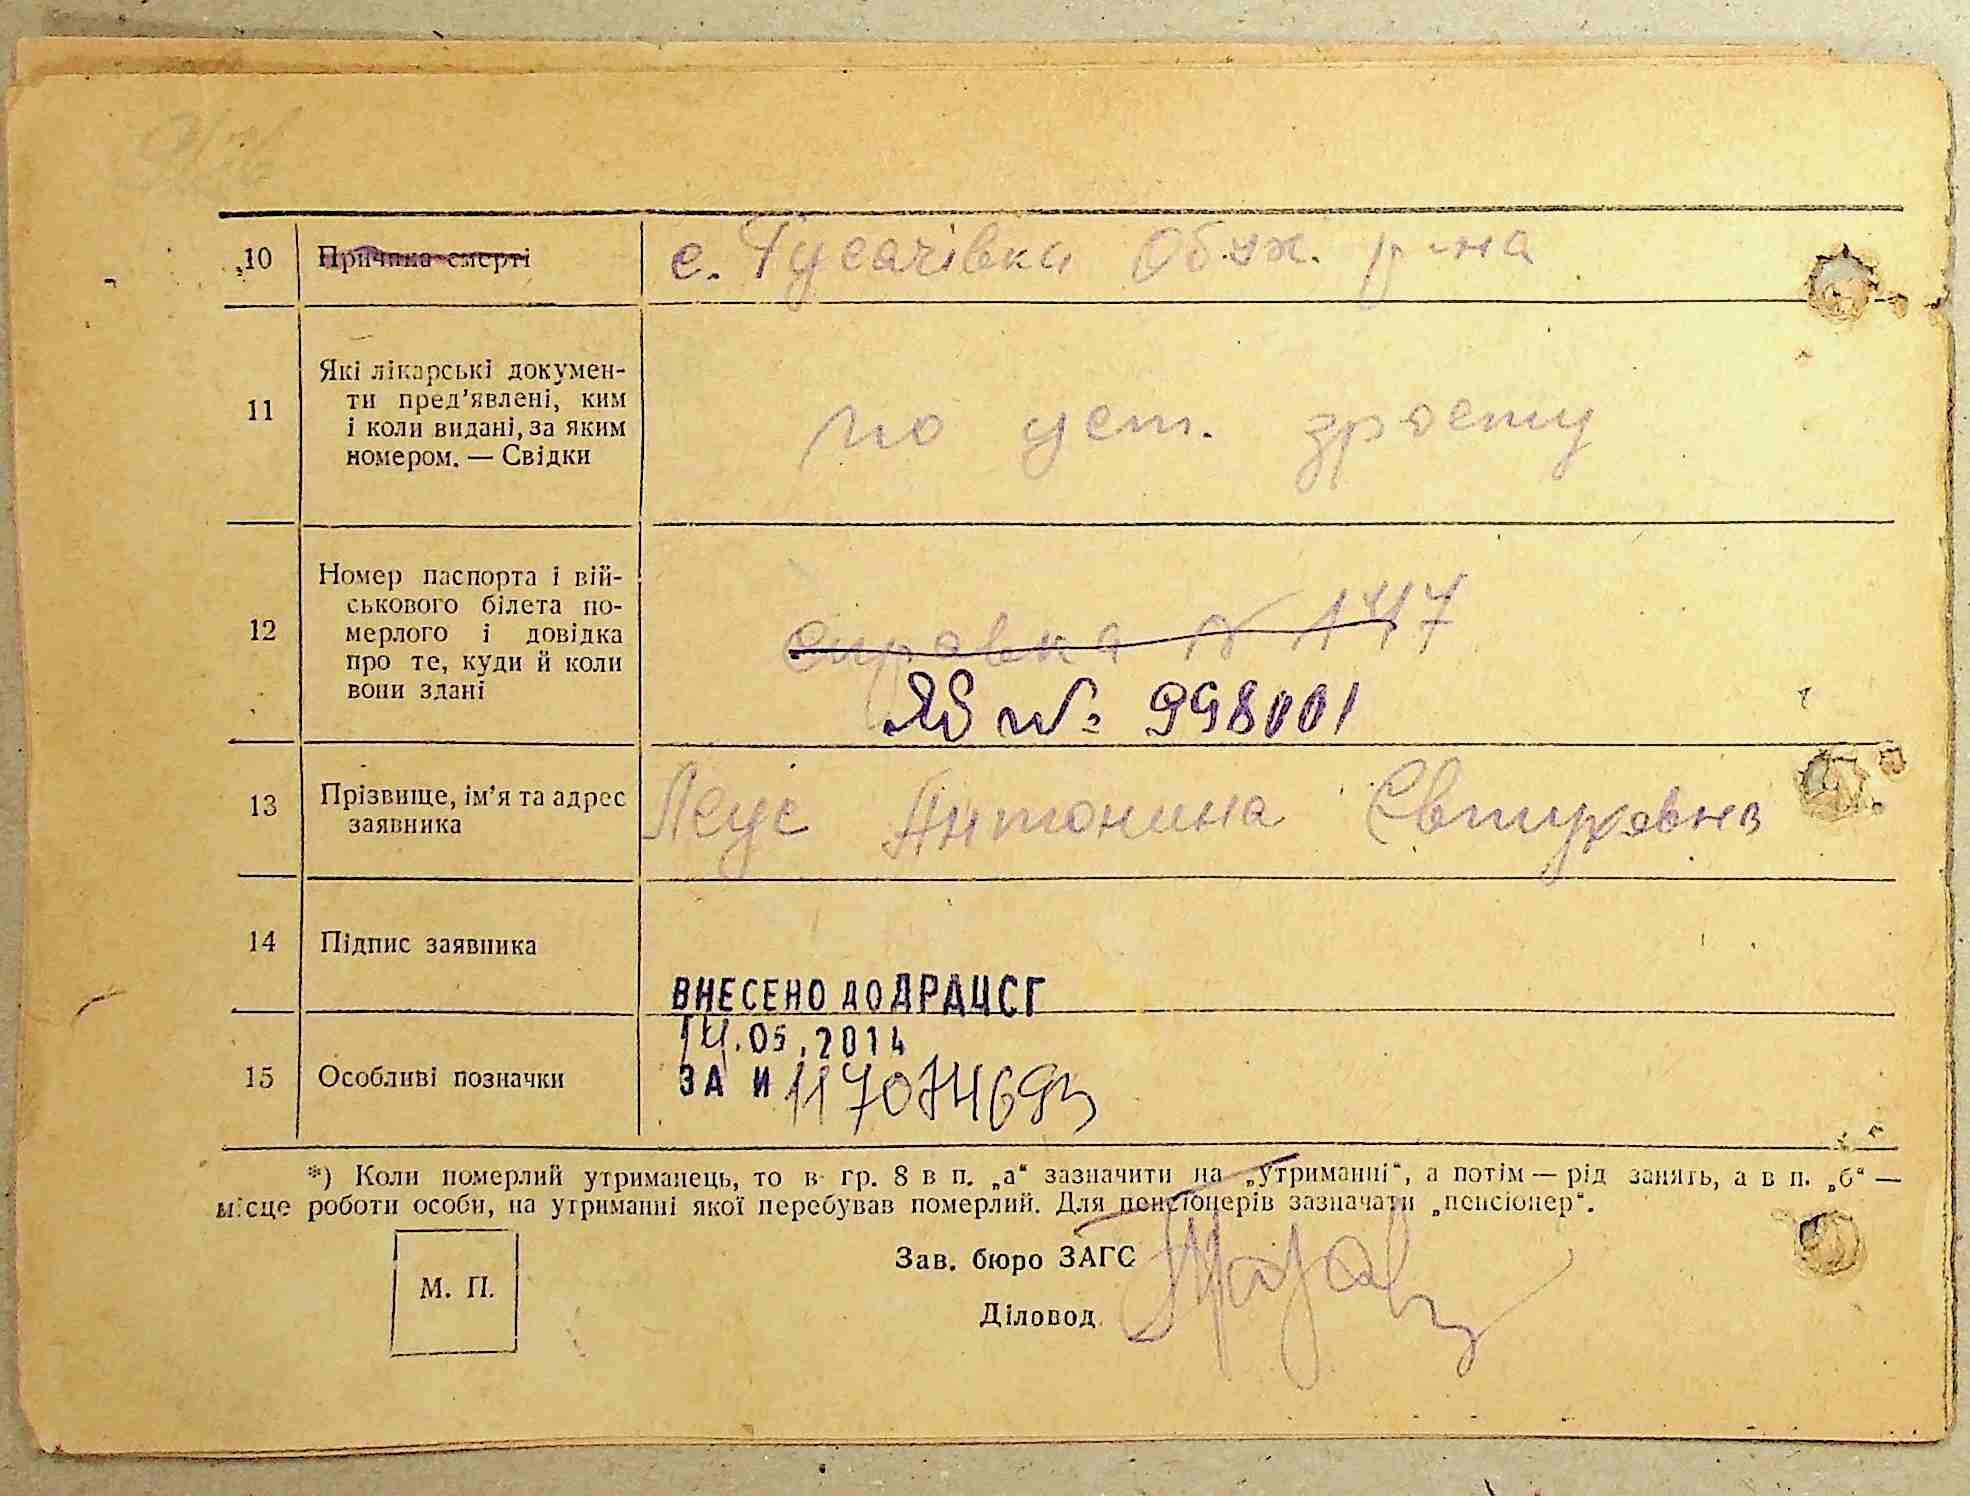 10 Причина смерті с. Гусачівка Обух. р-на
11 Які лікарські докумен-
ти пред'явлені, ким
і коли видані, за яким
номером. — Свідки
по уст. зросту
12 Номер паспорта і вій-
ськового білета по-
мерлого і довідка
про те, куди й коли
вони здані
справка N 1417
ЯБ №: 998001
13 Прізвище, ім'я та адрес
заявника
Леус Антонина Євтуховна
14 Підпис заявника
ВНЕСЕНО ДО ДРАЦСГ
14.05.2014
15 Особливі позначки
ЗА И
*) Коли померлий утриманець, то в гр. 8 в п. „а“ зазначити на „утриманні“, а потім — рід занять, а в п. „б“ —
місце роботи особи, на утриманні якої перебував померлий. Для пенсіонерів зазначати „пенсіонер“.
М. П.
Зав. бюро ЗАГС
Діловод